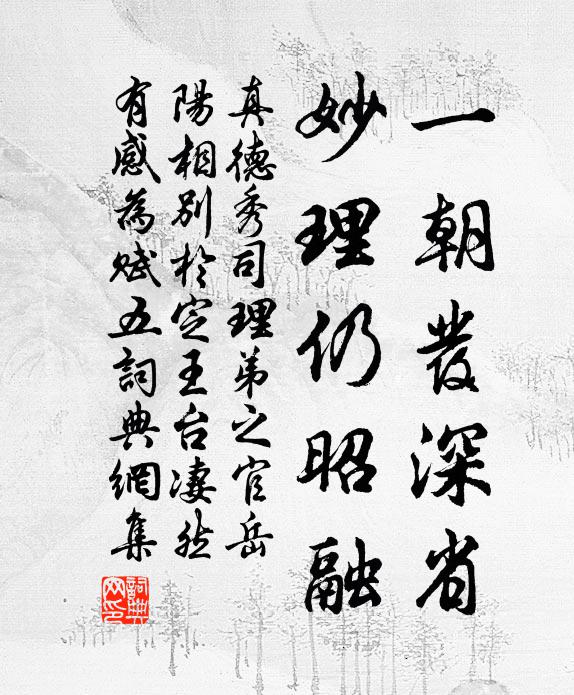 一朝發深省
妙理仍昭融
真德秀司理弟之官岳
陽相別於定王台淒然
有感為賦五詞典網集
詞典
网印